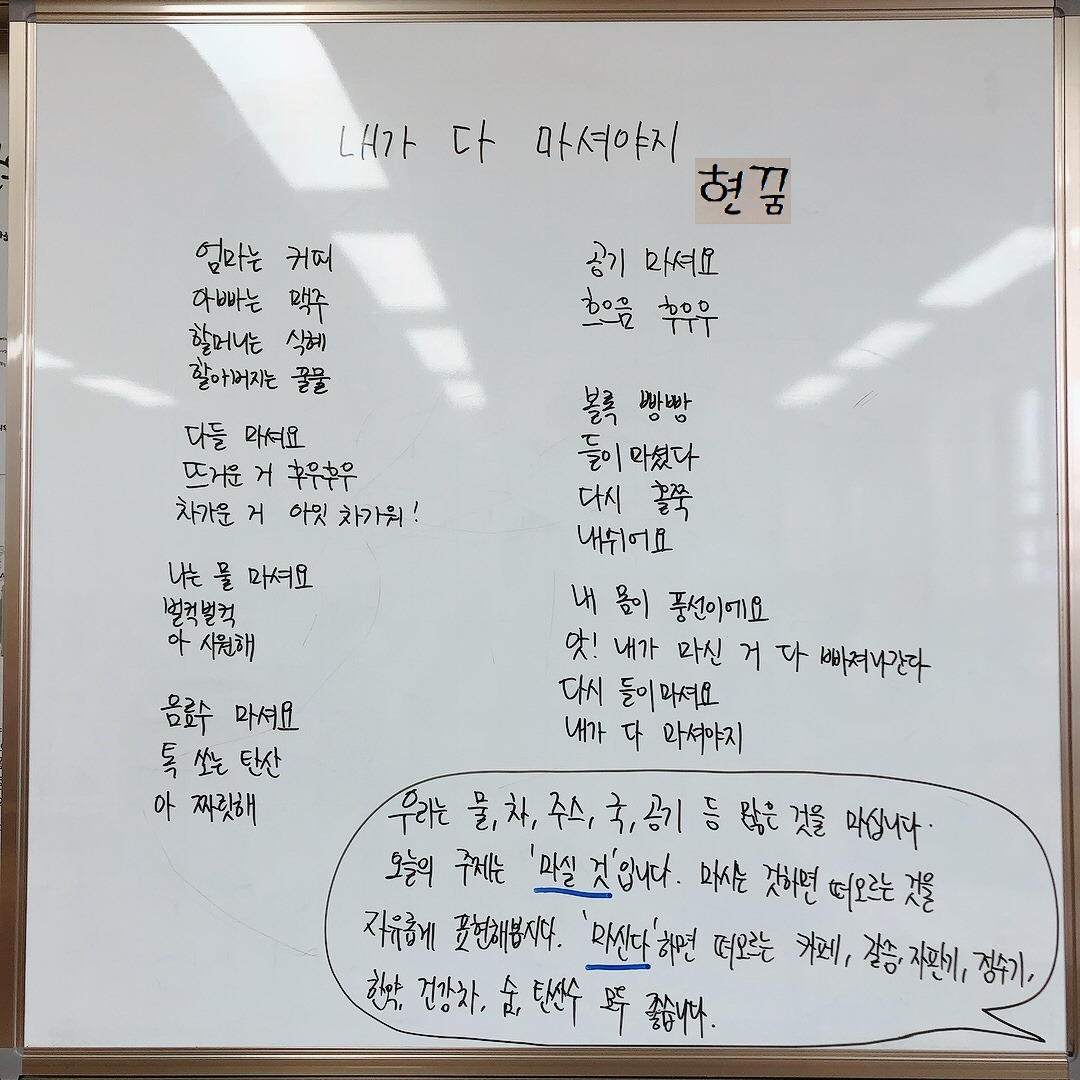 내가 다 마셔야지
현꿈
엄마는 커피
아빠는 맥주
할머니는 식혜
할아버지는 꿀물
다들 마셔요
뜨거운 거 후우후우
차가운 거 아잇 차가워!
나는 물 마셔요
벌컥벌컥
아 시원해
음료수 마셔요
톡 쏘는 탄산
아 짜릿해
공기 마셔요
흐으음 후우우
볼록 빵빵
들이마셨다
다시 홀쭉
내쉬어요
내 몸이 풍선이에요
앗! 내가 마신 거 다 빠져나간다
다시 들이마셔요
내가 다 마셔야지
우리는 물, 차, 주스, 국, 공기 등 많은 것을 마십니다.
오늘의 주제는 '마실 것'입니다. 마시는 것하면 떠오르는 것을
자유롭게 표현해봅시다. '마신다'하면 떠오르는 카페, 갈증, 자판기, 정수기,
한약, 건강차, 숨, 탄산수 모두 좋습니다.